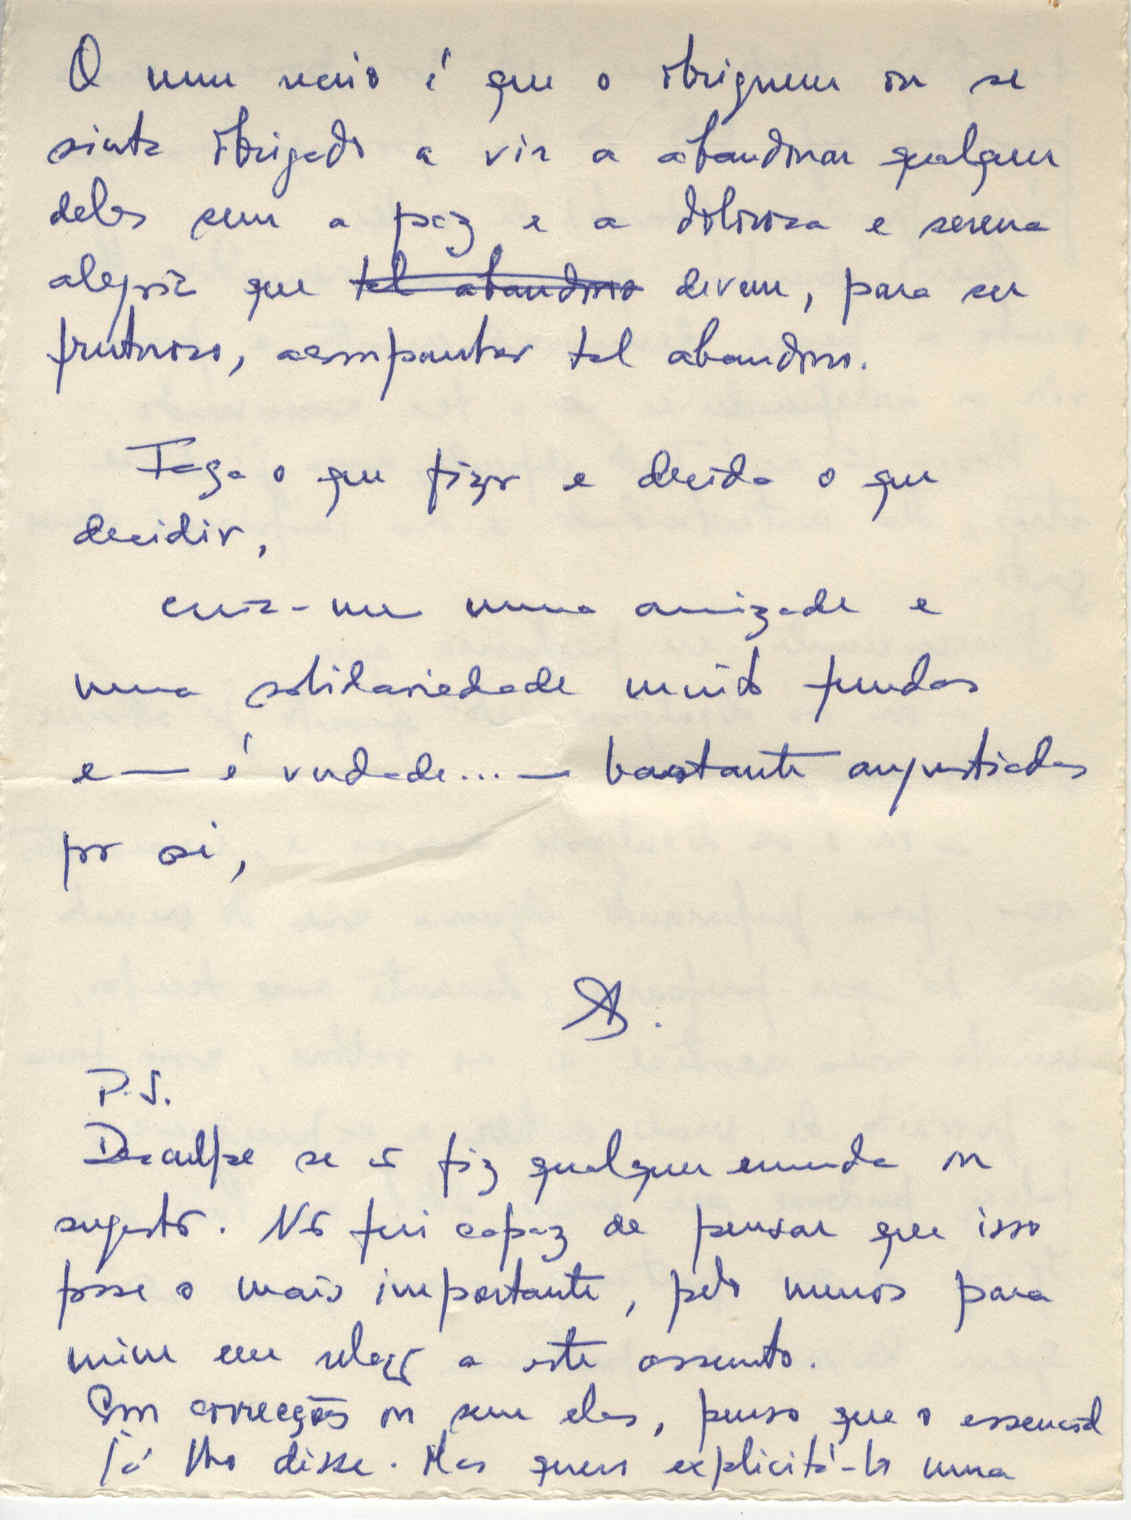 O meu receio é que o obriguem ou se
sinta obrigado a vir a abandonar qualquer
deles sem a paz e a dolorosa e serena
alegria que tal abandono devem, para ser
frutuoso, acompanhar tal abandono.
Faça o que fizer e decida o que
decidir,
creia-me numa amizade e
numa solidariedade muito fundas
e — é verdade... — bastante angustiadas
por si,
AB.
P.S.
Desculpe se não fiz qualquer emenda ou
sugestão. Não fui capaz de pensar que isso
fosse o mais importante, pelo menos para
mim em relação a este assunto.
Com correcções ou sem elas, penso que o essencial
já lho disse. Mas quero explicitá-lo uma